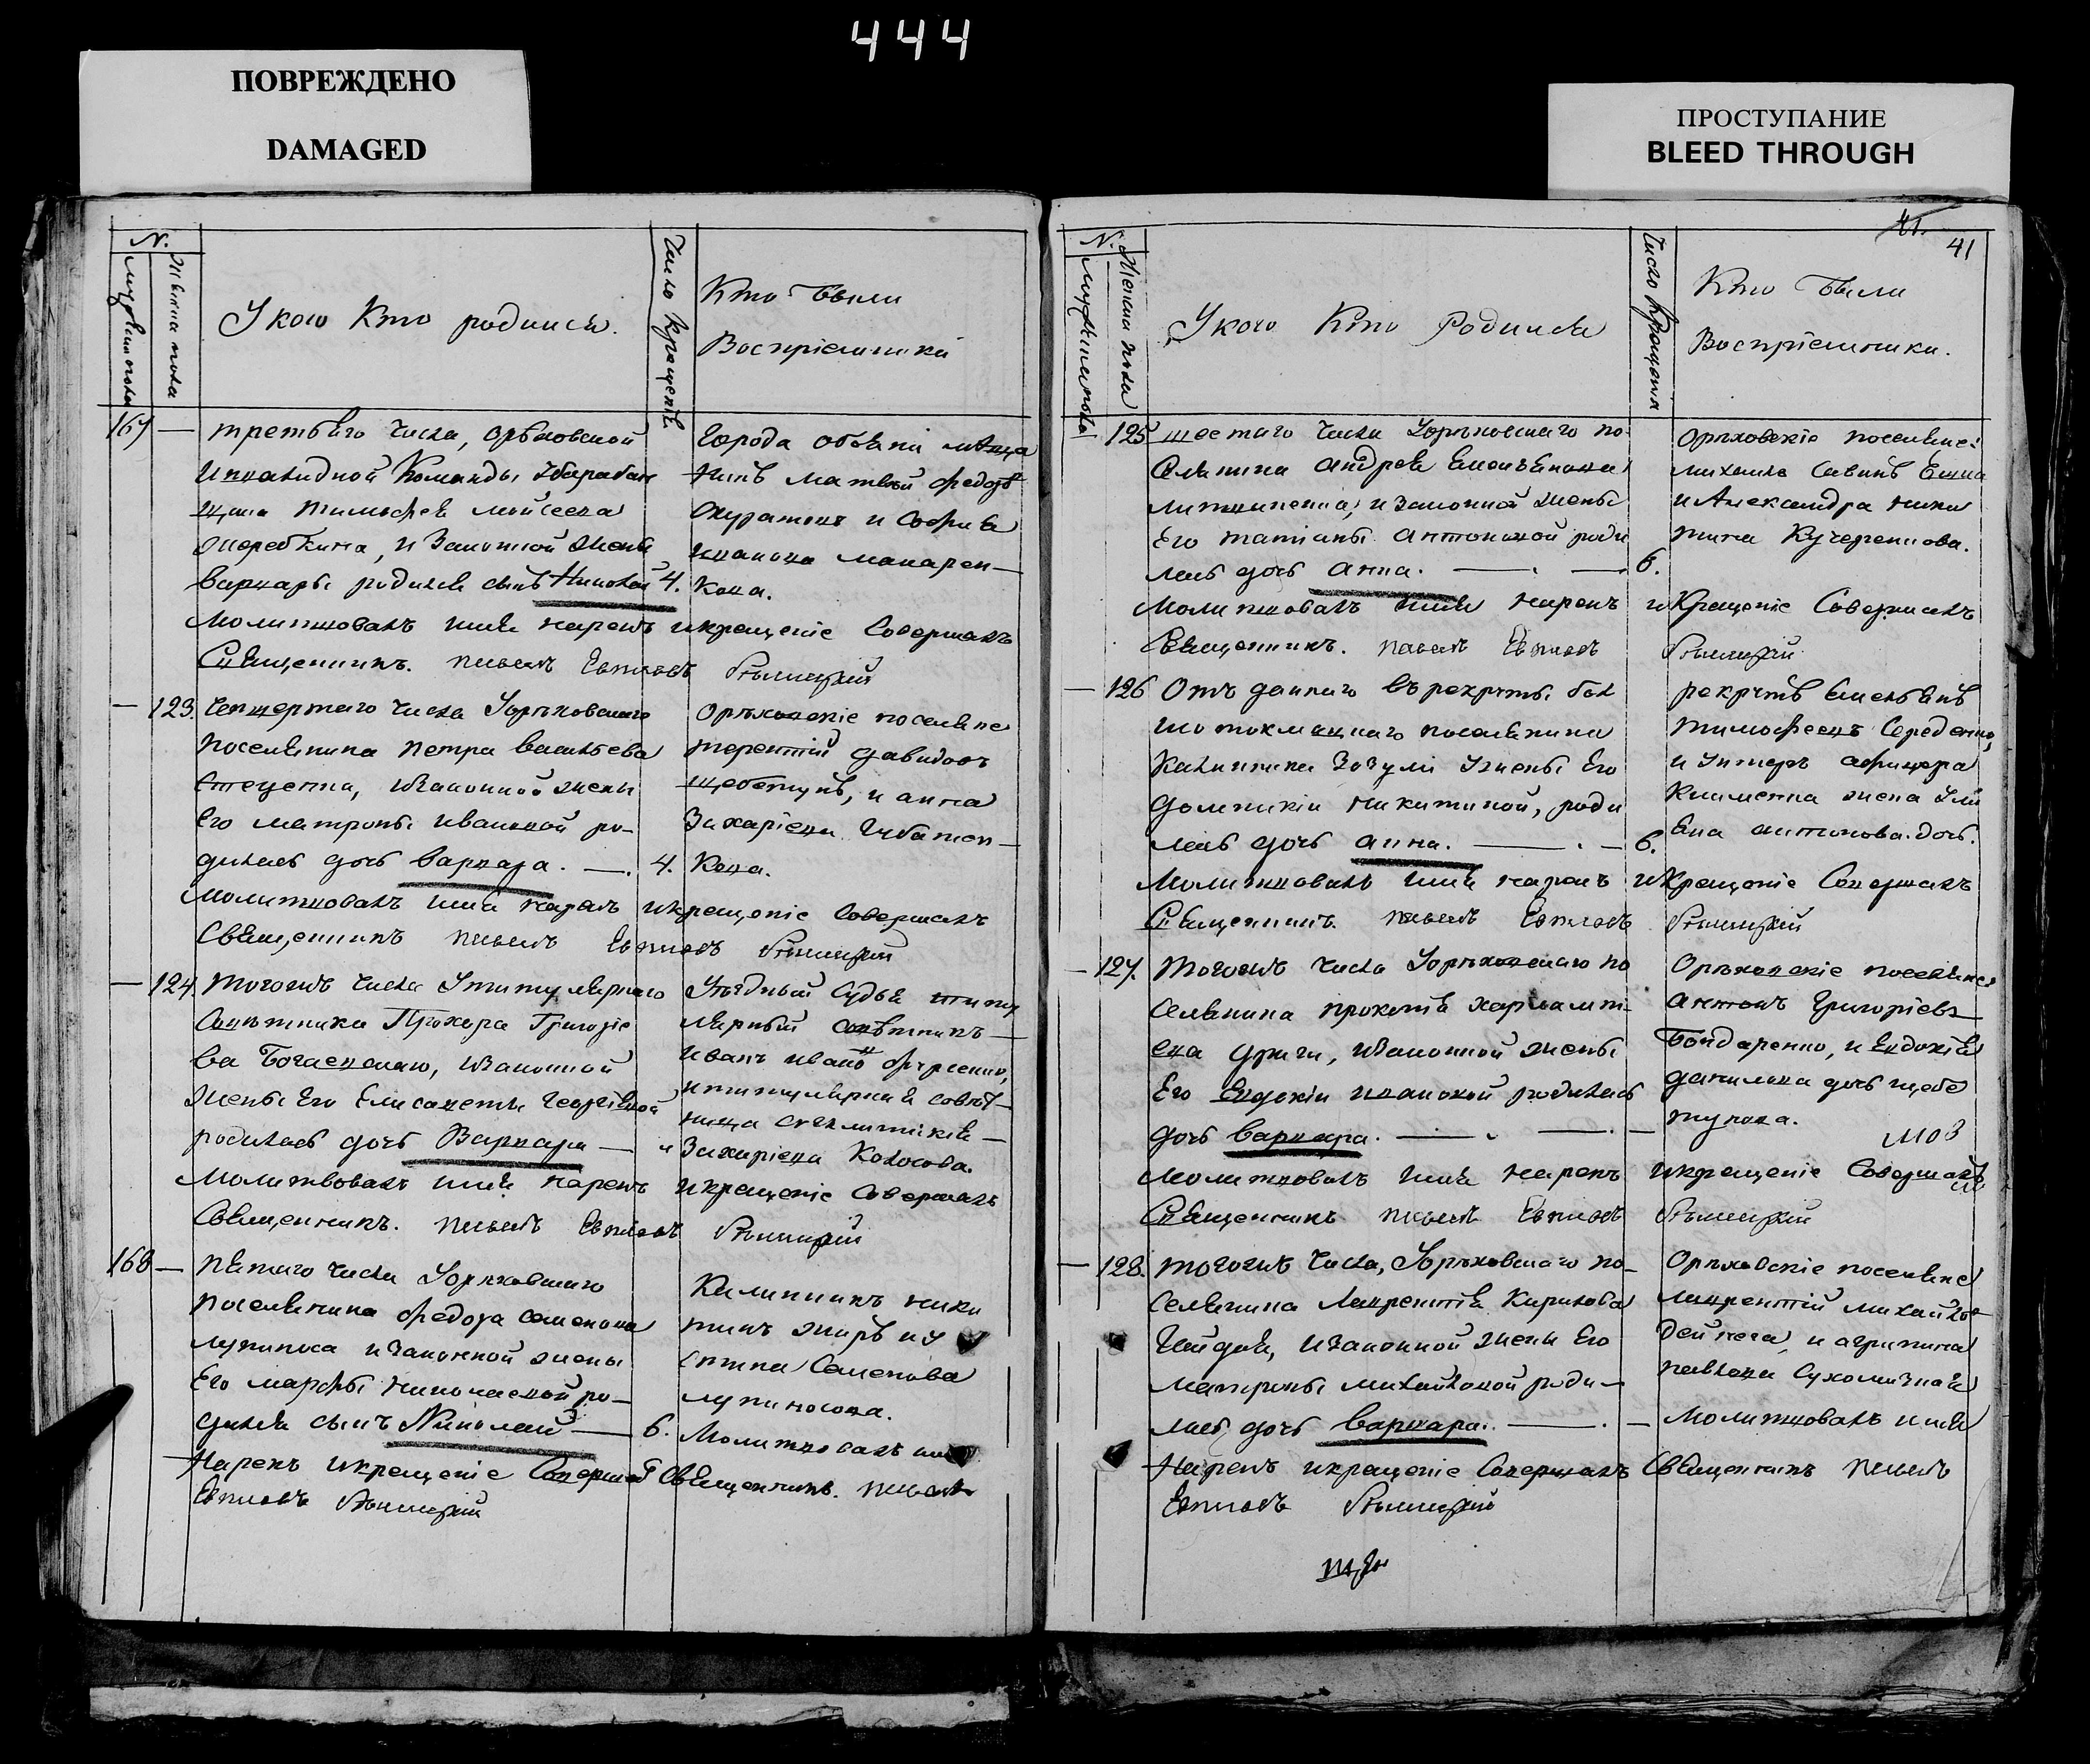 444
ПОВРЕЖДЕНО
DAMAGED
ПРОСТУПАНИЕ
BLEED THROUGH
N.
мужска пола
женска пола
У кого кто родился.
Число крещенія
Кто были
Воспріемники
167 —
третьяго числа, Орѣховской
инвалидной команды барабан
щика Тимофея Моисеева
Жеребкина, и законной жены
Варвары родился сынъ Николай 4.
Города
Матвей Федоров
и Софія
Иванова Макарен-
кова.
Молитвовалъ имя нарекъ и крещеніе совершалъ
Священникъ. Павелъ
— 123.
Четвертаго числа У Орѣховскаго
поселянина Петра Васильева
Стеценка, и законной жены
его Матроны Ивановой ро-
дилась дочь Варвара. — 4.
Орѣховскіе поселяне
Терентій Давидовъ
Щебетунъ, и Анна
Захаріева Губатен-
кова.
Молитвовалъ имя нарекъ и крещеніе совершалъ
Священникъ Павелъ
— 124.
Тогожъ числа У титулярнаго
Совѣтника Прохора Григорье
ва Богаевскаго, и законной
жены его Елисаветы Георгіевой
родилась дочь Варвара —
Уѣздный Судья титу
лярный совѣтникъ —
Иванъ Иванов Фурсенко,
и титулярная совѣт-
ница
Захаріева Колосова.
Молитвовалъ имя нарекъ и крещеніе совершалъ
Священникъ. Павелъ
168 —
Пятаго числа У Орѣховскаго
поселянина Федора Семенова
Лупиноса и законной жены
его Марфы Николаевой ро-
дился сынъ Николай — 6.
Калинникъ Ники
тинъ
Семенова
Лупиносова.
Молитвовалъ имя
нарекъ и крещеніе совершалъ Священникъ. Павелъ
41.
41
N.
мужска пола
Женска пола
У кого кто родился
Число крещенія
Кто были
Воспріемники.
125
шестаго числа У Орѣховскаго по-
селянина Андрея Емельянова
Литвиненка, и законной жены
его Татіаны Антоновой роди
лась дочь Анна. — 6.
Орѣховскіе поселяне:
Михаилъ Савинъ
и Александра Ники
тина Кучеренкова.
Молитвовалъ имя нарекъ и крещеніе совершалъ
Священникъ. Павелъ
— 126
Отъ даннаго въ рекруты бол
шотокмацкаго поселянина
Калинника Зозули у жены его
Домникіи Никитиной, роди
лась дочь Анна. — 6.
рекрутъ Емельянъ
Тимофеевъ Середенко,
и унтеръ афицера
Клименка жена Ули
яна Антонова дочь.
Молитвовалъ имя нарекъ и крещеніе совершалъ
Священникъ. Павелъ
— 127.
Тогожъ числа У Орѣховскаго по
селянина Прокопія Харлампі-
ева Дриги, и законной жены
его Евдокіи Ивановой родилась
дочь Варвара. —
Орѣховскіе поселяне
Антонъ Григорьевъ
Бондаренко, и Евдокія
Данилова дочь Щебе
тунова.
Молитвовалъ имя нарекъ и крещеніе совершалъ
Священникъ Павелъ
— 128.
Тогожъ числа, У Орѣховскаго по-
селянина Лаврентія Кирилова
Гайдая, и законной жены его
Матроны Михайловой роди-
лась дочь Варвара. —
Орѣховскіе поселяне
Лаврентій Михайлов
Дейнега, и Агрипина
Павлова Сухомлиная
Молитвовалъ имя
нарекъ и крещеніе совершалъ Священникъ Павелъ